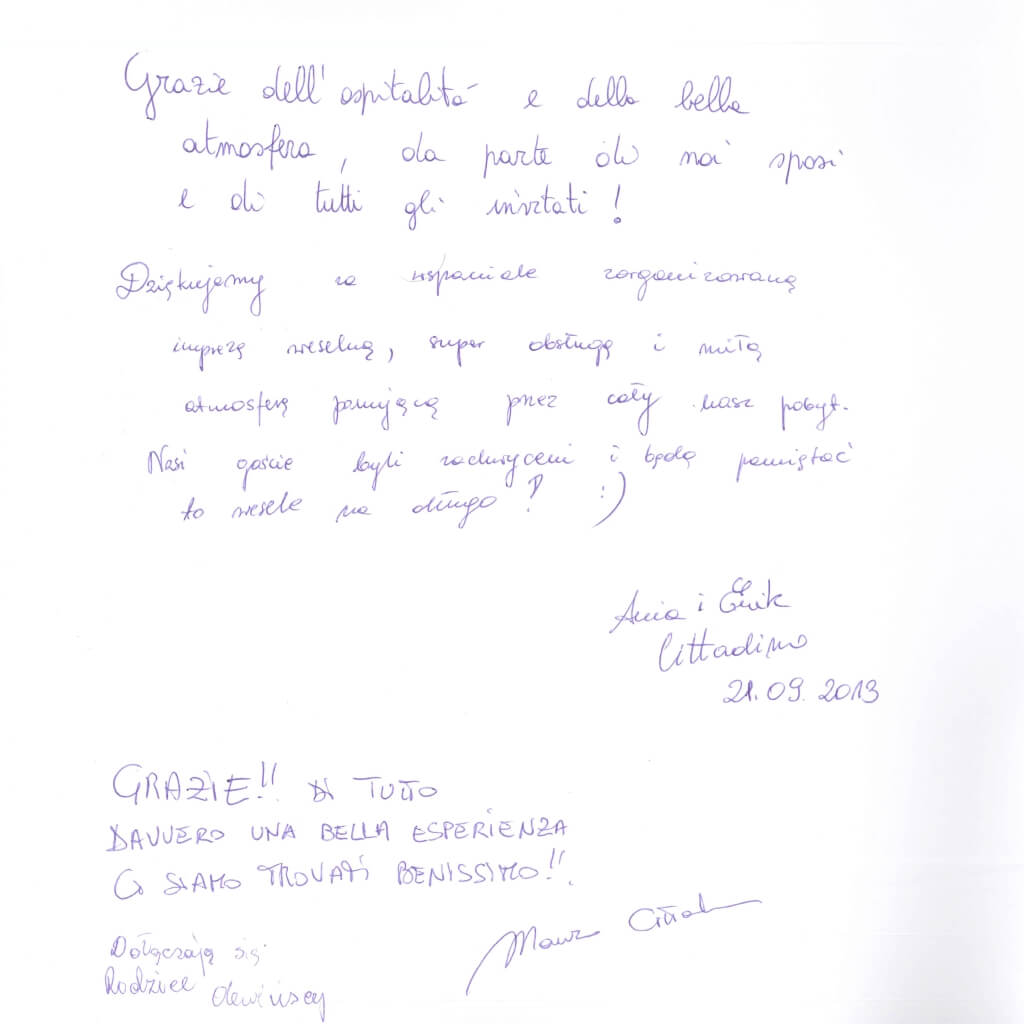 Grazie dell'ospitalitá e della bella
atmosfera, da parte di noi sposi
e di tutti gli invitati!
Dziękujemy za wspaniale zorganizowaną
imprezę weselną, super obsługę i miłą
atmosferę panującą przez cały nasz pobyt.
Nasi goście byli zachwyceni i będą pamiętać
to wesele na długo! :)
Ania i Erik
Cittadino
21.09.2013
GRAZIE!! DI TUTTO
DAVVERO UNA BELLA ESPERIENZA
CI SIAMO TROVATI BENISSIMO!!
Dołączają się
Rodzice